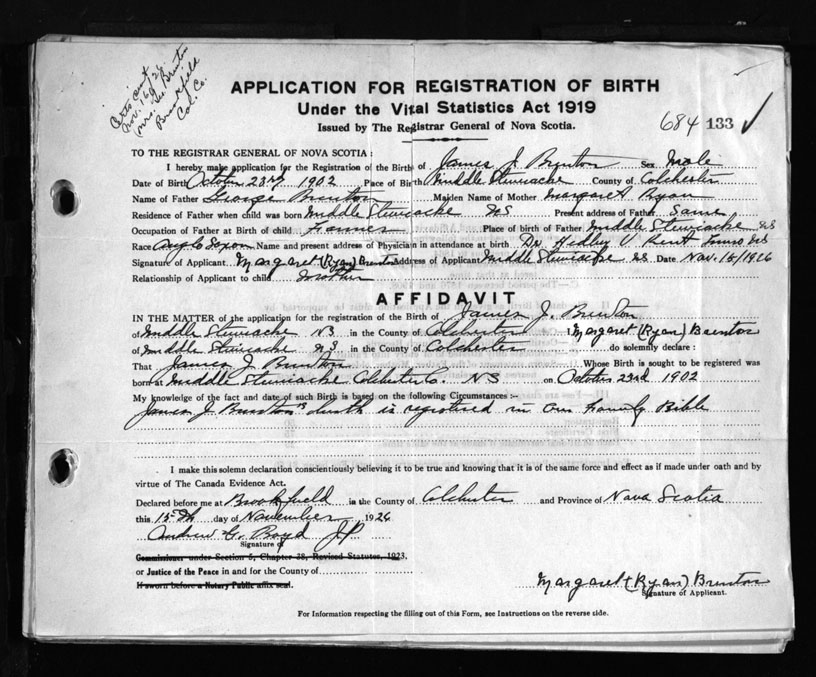 Certs sent
Nov. 16/26
Mrs. Geo Brenton
Brookfield
Col. Co.
APPLICATION FOR REGISTRATION OF BIRTH
Under the Vital Statistics Act 1919
Issued by The Registrar General of Nova Scotia.
684 133 ✓
TO THE REGISTRAR GENERAL OF NOVA SCOTIA :
I hereby make application for the Registration of the Birth of James J. Brenton Sex Male
Date of Birth October 23rd 1902 Place of Birth Middle Stewiacke County of Colchester
Name of Father George Brenton Maiden Name of Mother Margaret Ryan
Residence of Father when child was born Middle Stewiacke NS Present address of Father Same
Occupation of Father at Birth of child Farmer Place of birth of Father Middle Stewiacke NS
Race Anglo Saxon Name and present address of Physician in attendance at birth Dr. Hedley V Kent Truro NS
Signature of Applicant Margaret (Ryan) Brenton Address of Applicant Middle Stewiacke NS Date Nov. 15/1926
Relationship of Applicant to child Mother
AFFIDAVIT
IN THE MATTER of the application for the registration of the Birth of James J. Brenton
of Middle Stewiacke NS in the County of Colchester I Margaret (Ryan) Brenton
of Middle Stewiacke NS in the County of Colchester do solemnly declare :
That James J. Brenton Whose Birth is sought to be registered was
born at Middle Stewiacke Colchester Co. NS on October 23rd 1902
My knowledge of the fact and date of such Birth is based on the following Circumstances :-
James J. Brenton's birth is registered in our Family Bible
I make this solemn declaration conscientiously believing it to be true and knowing that it is of the same force and effect as if made under oath and by
virtue of The Canada Evidence Act.
Declared before me at Brookfield in the County of Colchester and Province of Nova Scotia
this 15th day of November 1926
Andrew G. Boyd JP
Signature of
Commissioner under Section 5, Chapter 38, Revised Statutes, 1923.
or Justice of the Peace in and for the County of
If sworn before a Notary Public affix seal.
Margaret (Ryan) Brenton
Signature of Applicant.
For Information respecting the filling out of this Form, see Instructions on the reverse side.